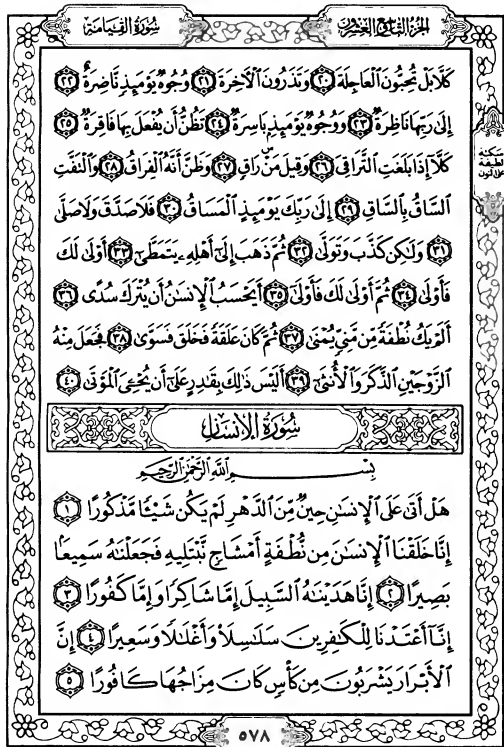 الجزء التاسع والعشرون
سورة القيامة
كَلَّا بَلْ تُحِبُّونَ ٱلْعَاجِلَةَ ٢٠ وَتَذَرُونَ ٱلْءَاخِرَةَ ٢١ وُجُوهٌ يَوْمَئِذٍ نَّاضِرَةٌ ٢٢
إِلَىٰ رَبِّهَا نَاظِرَةٌ ٢٣ وَوُجُوهٌ يَوْمَئِذٍۭ بَاسِرَةٌ ٢٤ تَظُنُّ أَن يُفْعَلَ بِهَا فَاقِرَةٌ ٢٥
كَلَّآ إِذَا بَلَغَتِ ٱلتَّرَاقِىَ ٢٦ وَقِيلَ مَنْۜ رَاقٍ ٢٧ وَظَنَّ أَنَّهُ ٱلْفِرَاقُ ٢٨ وَٱلْتَفَّتِ
سكتة
لطيفة
على النون
ٱلسَّاقُ بِٱلسَّاقِ ٢٩ إِلَىٰ رَبِّكَ يَوْمَئِذٍ ٱلْمَسَاقُ ٣٠ فَلَا صَدَّقَ وَلَا صَلَّىٰ
٣١ وَلَٰكِن كَذَّبَ وَتَوَلَّىٰ ٣٢ ثُمَّ ذَهَبَ إِلَىٰٓ أَهْلِهِۦ يَتَمَطَّىٰٓ ٣٣ أَوْلَىٰ لَكَ
فَأَوْلَىٰ ٣٤ ثُمَّ أَوْلَىٰ لَكَ فَأَوْلَىٰٓ ٣٥ أَيَحْسَبُ ٱلْإِنسَٰنُ أَن يُتْرَكَ سُدًى ٣٦
أَلَمْ يَكُ نُطْفَةً مِّن مَّنِىٍّ يُمْنَىٰ ٣٧ ثُمَّ كَانَ عَلَقَةً فَخَلَقَ فَسَوَّىٰ ٣٨ فَجَعَلَ مِنْهُ
ٱلزَّوْجَيْنِ ٱلذَّكَرَ وَٱلْأُنثَىٰٓ ٣٩ أَلَيْسَ ذَٰلِكَ بِقَٰدِرٍ عَلَىٰٓ أَن يُحْۦِىَ ٱلْمَوْتَىٰ ٤٠
سُورَةُ الإِنسَانِ
بِسْمِ ٱللَّهِ ٱلرَّحْمَٰنِ ٱلرَّحِيمِ
هَلْ أَتَىٰ عَلَى ٱلْإِنسَٰنِ حِينٌ مِّنَ ٱلدَّهْرِ لَمْ يَكُن شَيْـًٔا مَّذْكُورًا ١
إِنَّا خَلَقْنَا ٱلْإِنسَٰنَ مِن نُّطْفَةٍ أَمْشَاجٍ نَّبْتَلِيهِ فَجَعَلْنَٰهُ سَمِيعًۢا
بَصِيرًا ٢ إِنَّا هَدَيْنَٰهُ ٱلسَّبِيلَ إِمَّا شَاكِرًا وَإِمَّا كَفُورًا ٣
إِنَّآ أَعْتَدْنَا لِلْكَٰفِرِينَ سَلَٰسِلَا۟ وَأَغْلَٰلًا وَسَعِيرًا ٤ إِنَّ
ٱلْأَبْرَارَ يَشْرَبُونَ مِن كَأْسٍ كَانَ مِزَاجُهَا كَافُورًا ٥
٥٧٨